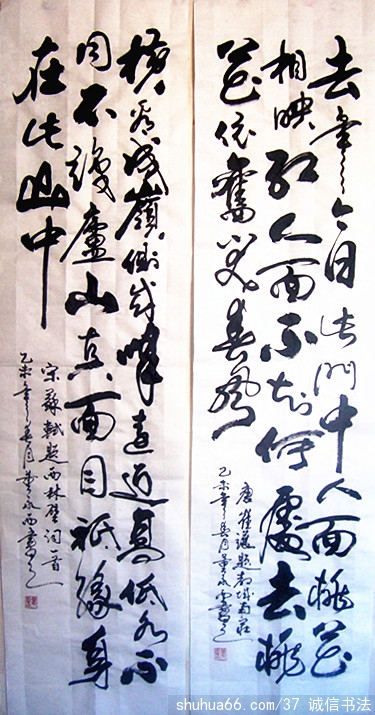 去年今日此門中人面桃花
相映红人面不知何處去桃
花依舊笑春風
唐崔護題都城南莊
乙未年春月
横看成嶺側成峰遠近高低各不
同不識廬山真面目祇緣身
在此山中
宋蘇軾題西林壁詞一首
乙未年春月
shuhua66.com/37 诚信书法